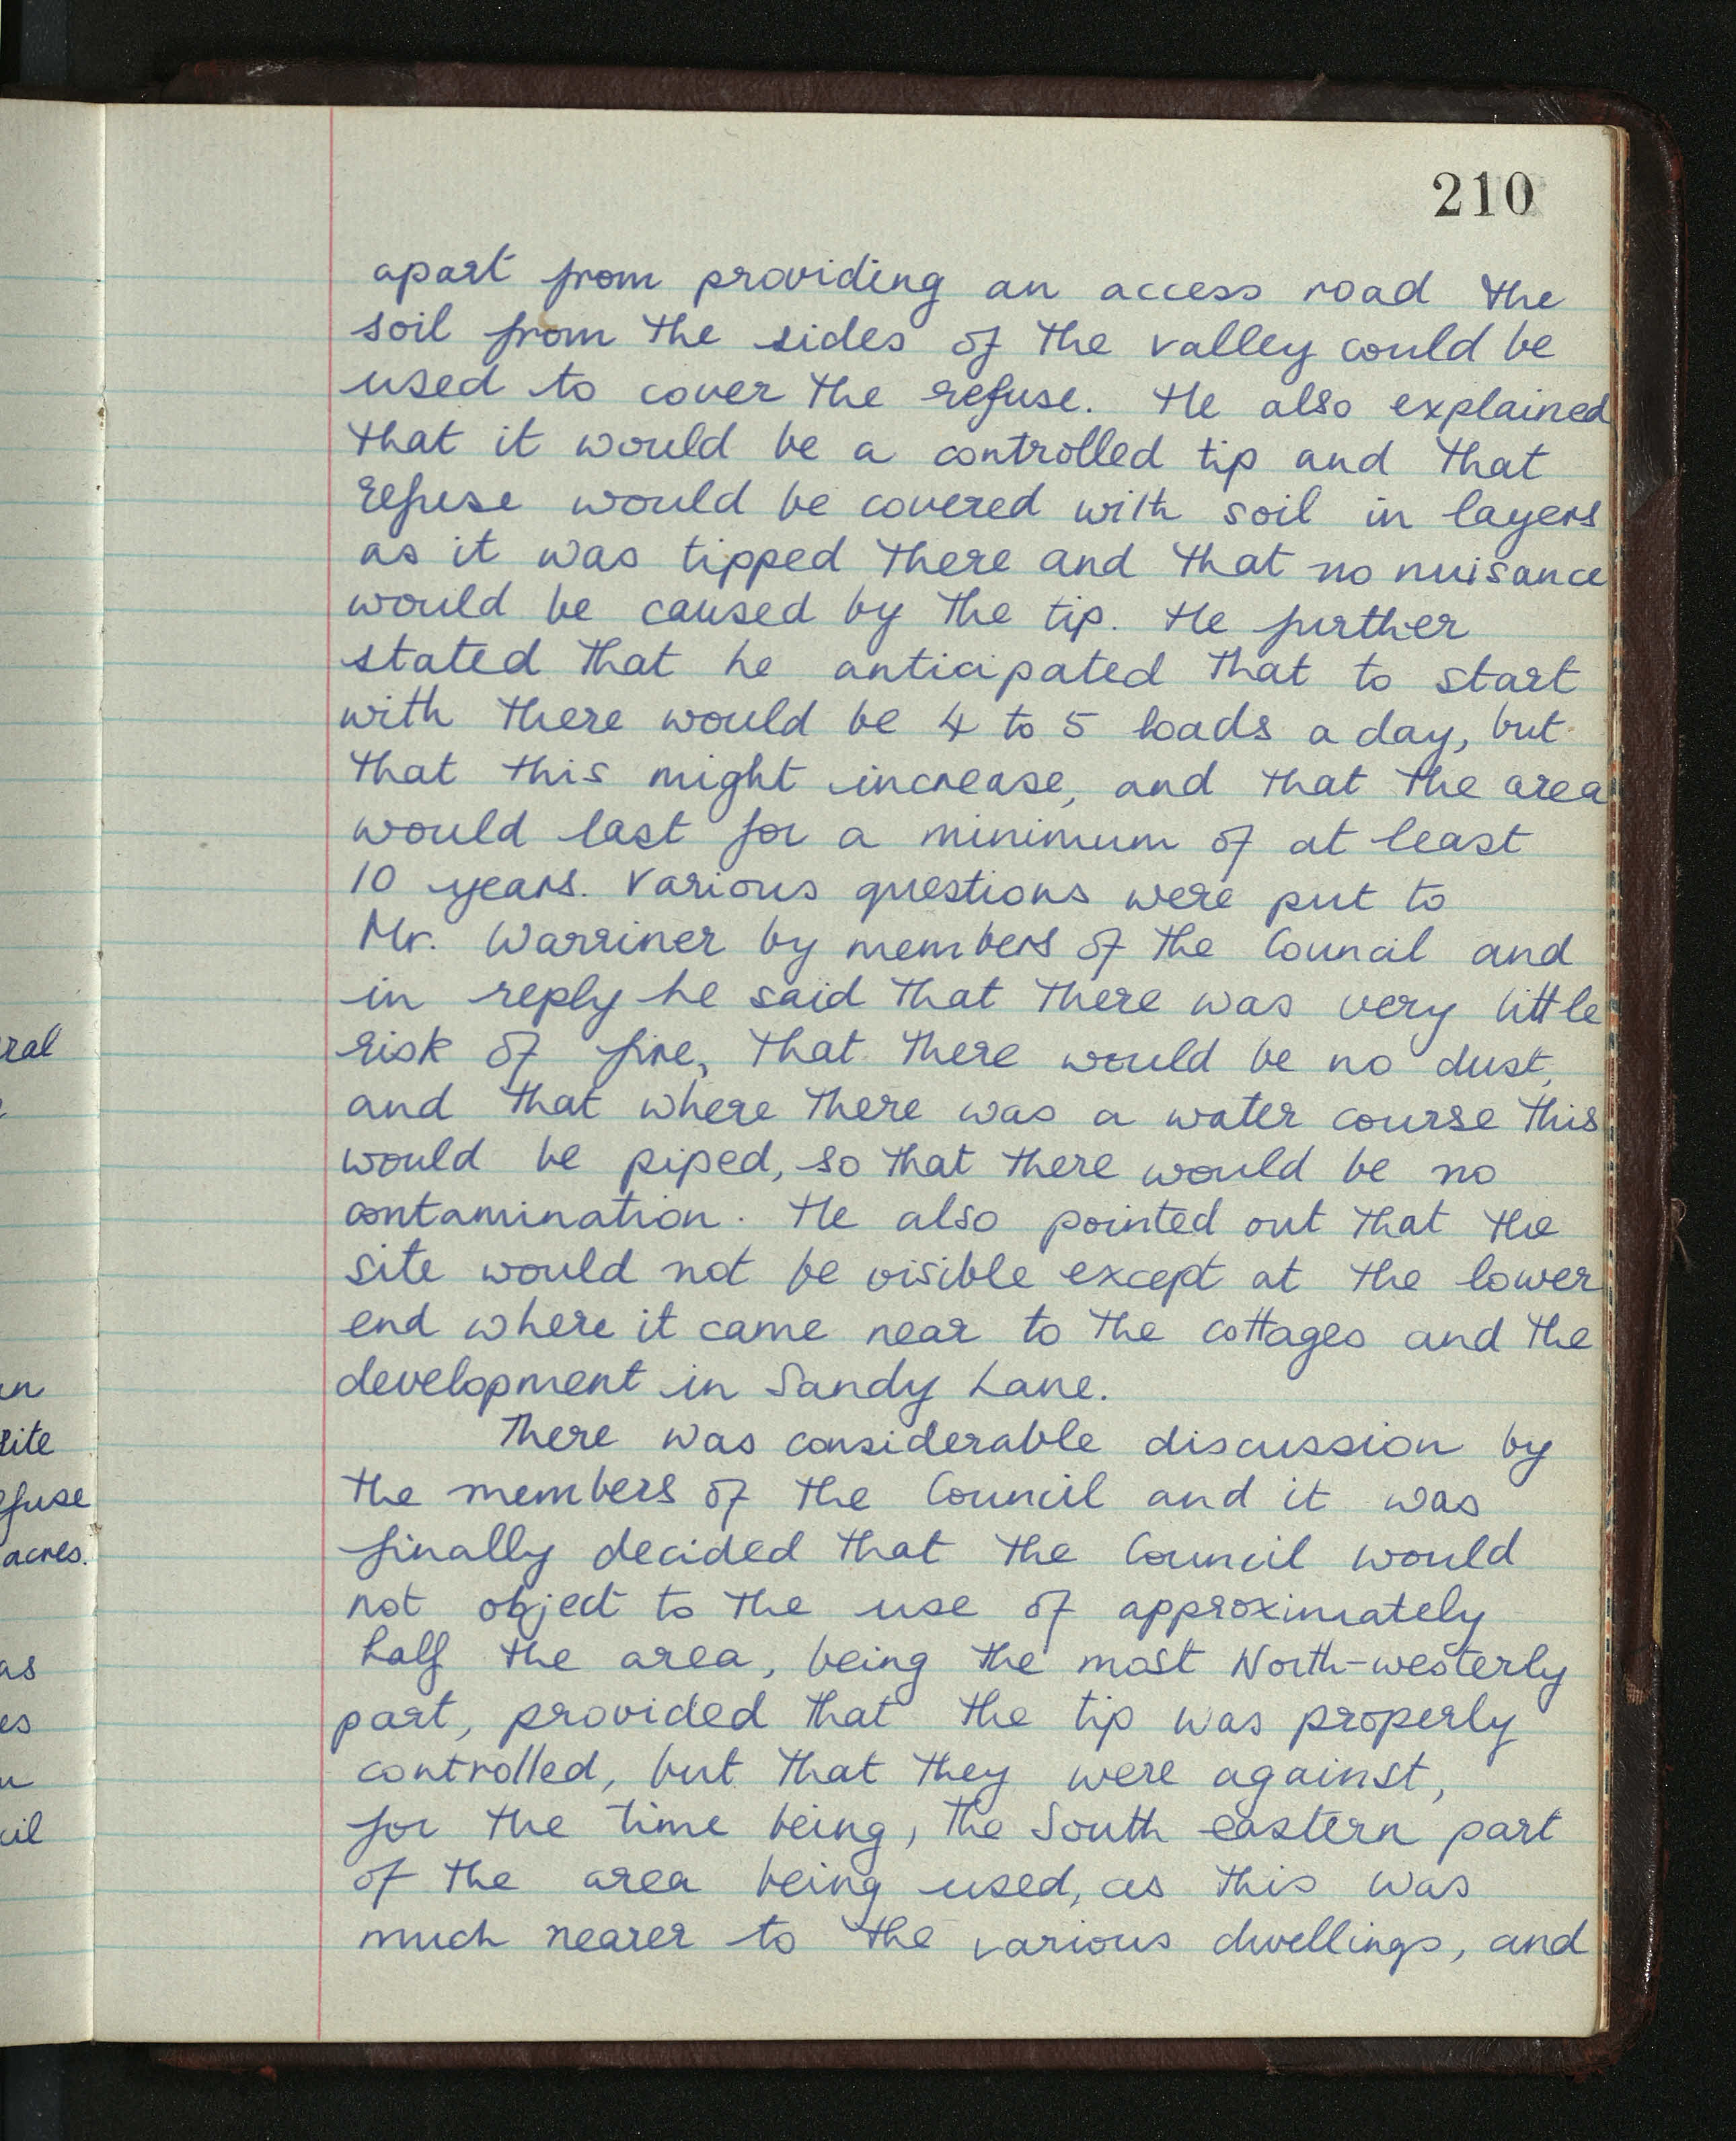 210
apart from providing an access road the
soil from the sides of the valley could be
used to cover the refuse. He also explained
that it would be a controlled tip and that
refuse would be covered with soil in layers
as it was tipped there and that no nuisance
would be caused by the tip. He further
stated that he anticipated that to start
with there would be 4 to 5 loads a day, but
that this might increase, and that the area
would last for a minimum of at least
10 years. Various questions were put to
Mr. Warriner by members of the Council and
in reply he said that there was very little
risk of fire, that there would be no dust,
and that where there was a water course this
would be piped, so that there would be no
contamination. He also pointed out that the
site would not be visible except at the lower
end where it came near to the cottages and the
development in Sandy Lane.
There was considerable discussion by
the members of the Council and it was
finally decided that the Council would
not object to the use of approximately
half the area, being the most North-westerly
part, provided that the tip was properly
controlled, but that they were against,
for the time being, the South eastern part
of the area being used, as this was
much nearer to the various dwellings, and
ral
in
site
fuse
acres.
as
es
cil